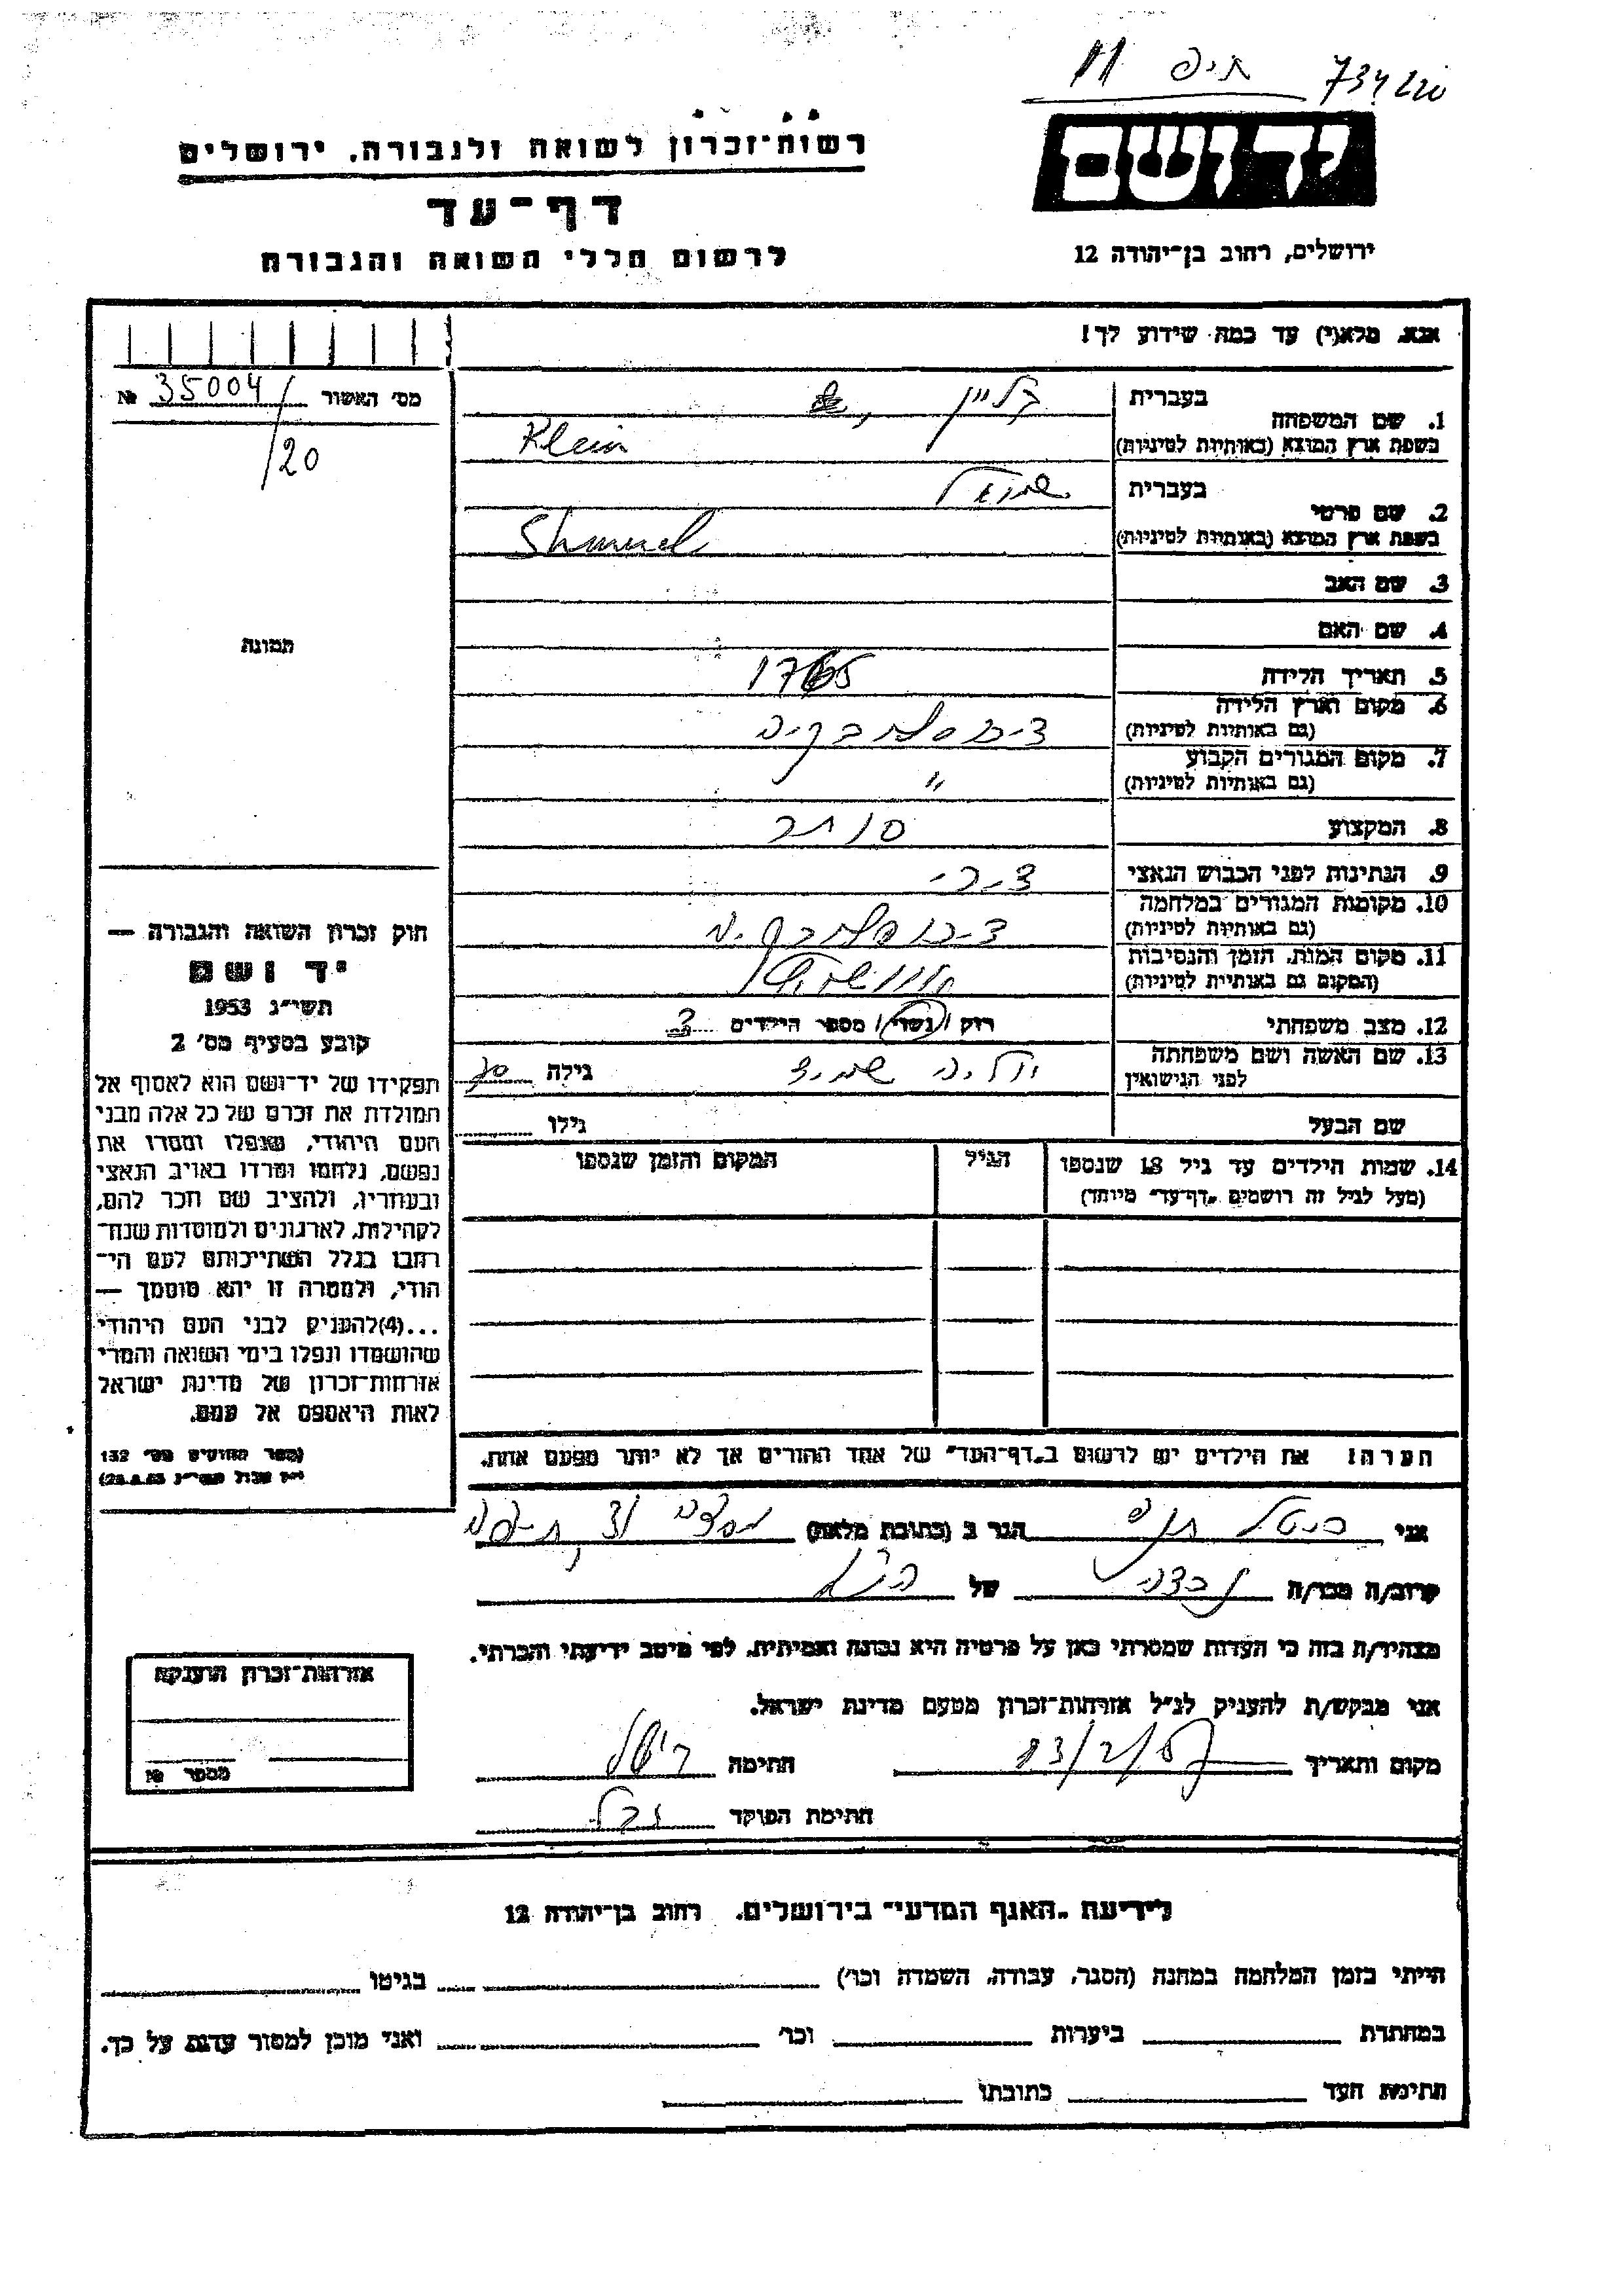 חיפה 11
734220
רשות־זכרון לשואה ולגבורה, ירושלים
יד ושם
דף־עד
ירושלים, רחוב בן־יהודה 12
לרשום חללי השואה והגבורה
אנא, מלא(י) עד כמה שידוע לך!
מס׳ האשור 35004 №
/20
תמונה
1. שם המשפחה
בעברית קליין
בשפת ארץ המוצא (באותיות לטיניות) Klein
2. שם פרטי
בעברית שמואל
בשפת ארץ המוצא (באותיות לטיניות) Shmuel
3. שם האב
4. שם האם
5. תאריך הלידה
6. מקום וארץ הלידה צ'כוסלובקיה
(גם באותיות לטיניות)
7. מקום המגורים הקבוע "
(גם באותיות לטיניות)
8. המקצוע סוחר
9. הנתינות לפני הכבוש הנאצי צ'כי
10. מקומות המגורים במלחמה צ'כוסלובקיה
(גם באותיות לטיניות)
11. מקום המות, הזמן והנסיבות
(המקום גם באותיות לטיניות)
12. מצב משפחתי רוק / נשוי / מספר הילדים 3
13. שם האשה ושם משפחתה
לפני הנישואין
גילה 70
שם הבעל גילו
14. שמות הילדים עד גיל 18 שנספו הגיל המקום והזמן שנספו
(מעל לגיל זה רושמים „דף־עד” מיוחד)
חוק זכרון השואה והגבורה —
יד ושם
תשי״ג 1953
קובע בסעיף מס׳ 2
תפקידו של יד־ושם הוא לאסוף אל
המולדת את זכרם של כל אלה מבני
העם היהודי, שנפלו ומסרו את
נפשם, נלחמו ומרדו באויב הנאצי
ובעוזריו, ולהציב שם וזכר להם,
לקהילות, לארגונים ולמוסדות שנח־
רבו בגלל השתייכותם לעם הי־
הודי, ולמטרה זו יהא מוסמך —
...(4)להעניק לבני העם היהודי
שהושמדו ונפלו בימי השואה והמרי
אזרחות־זכרון של מדינת ישראל
לאות היאספם אל עמם.
(ספר החוקים מס׳ 132
י״ז אלול תשי״ג 28.8.53)
הערה! את הילדים יש לרשום ב„דף־העד” של אחד ההורים אך לא יותר מפעם אחת.
אני הגר ב (כתובת מלאה) חיפה
קרוב/ה מכר/ה נכדה של הנ"ל
מצהיר/ה בזה כי העדות שמסרתי כאן על פרטיה היא נכונה ואמיתית, לפי מיטב ידיעתי והכרתי.
אני מבקש/ת להעניק לנ״ל אזרחות־זכרון מטעם מדינת ישראל.
מקום ותאריך חתימה
חתימת הפוקד
אזרחות־זכרון הוענקה
מספר №
לידיעת „האגף המדעי” בירושלים, רחוב בן־יהודה 12
הייתי בזמן המלחמה במחנה (הסגר, עבודה, השמדה וכו׳) בגיטו
במחתרת ביערות וכו׳ ואני מוכן למסור עדות על כך.
חתימת העד כתובתו